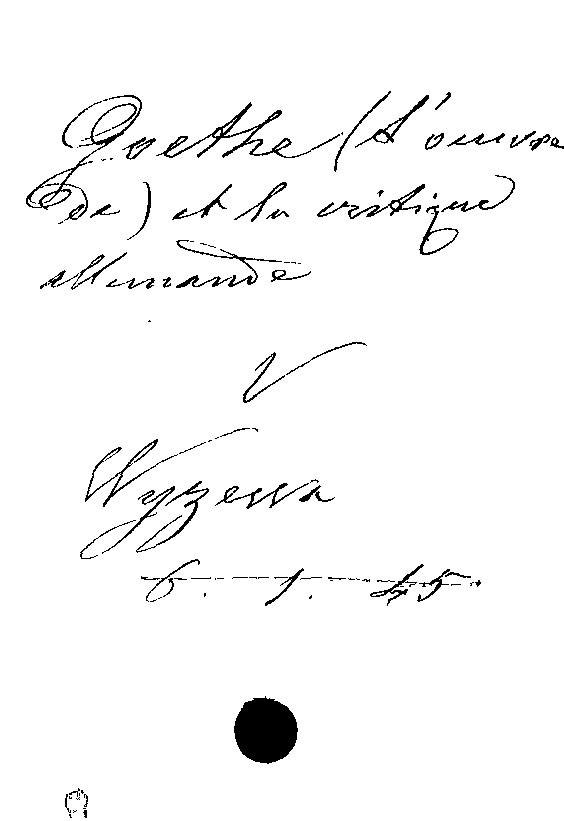 Goethe (L'oeuvre
de) et la critique
allemande
V
Wyzewa
6. 1. 45.